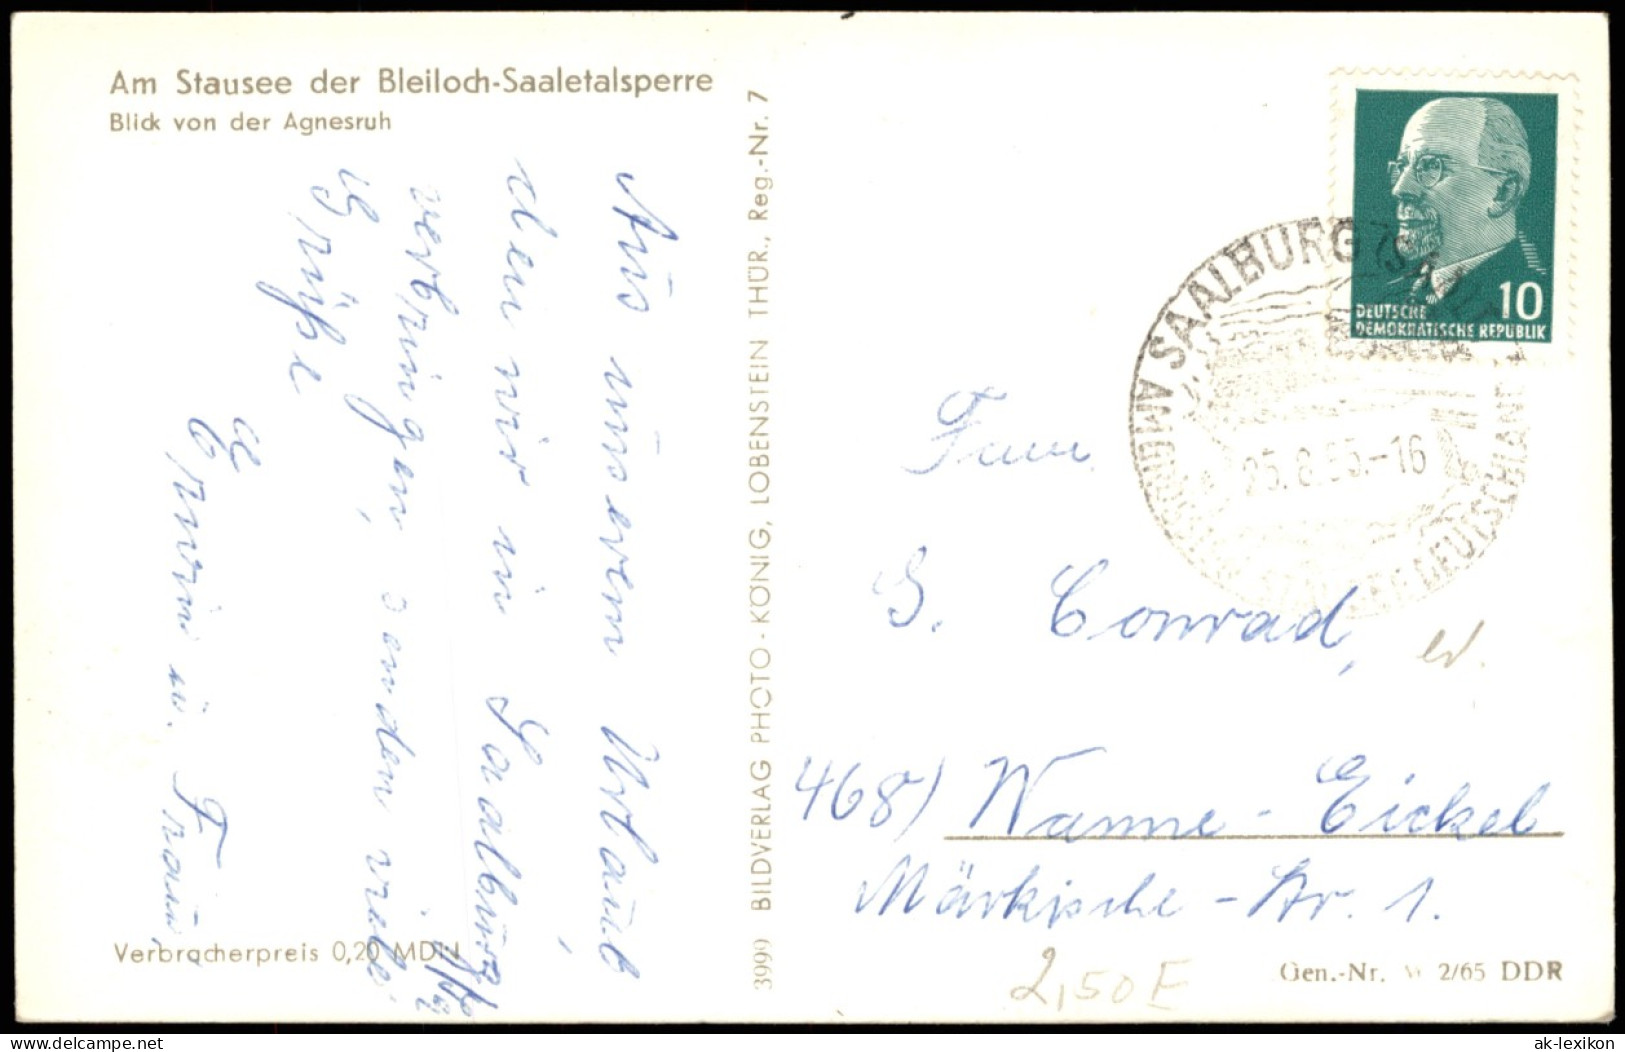 Am Stausee der Bleiloch-Saaletalsperre
Blick von der Agnesruh
Aus unserem Urlaub,
den wir in Saalburg/S.
verbringen, senden viele
Grüße
Erwin u. Frau,
Verbracherpreis 0,20 MDN
3999 BILDVERLAG PHOTO-KÖNIG, LOBENSTEIN THÜR., Reg.-Nr. 7
DEUTSCHE
DEMOKRATISCHE REPUBLIK
10
SAALBURG (SAALE)
25.8.65.-16
DEUTSCHLANDS
Frau
G. Conrad,
468) Wanne-Eickel
Märkische-Str. 1.
2,50 E
Gen.-Nr. W 2/65 DDR
www.delcampe.net
ak-lexikon